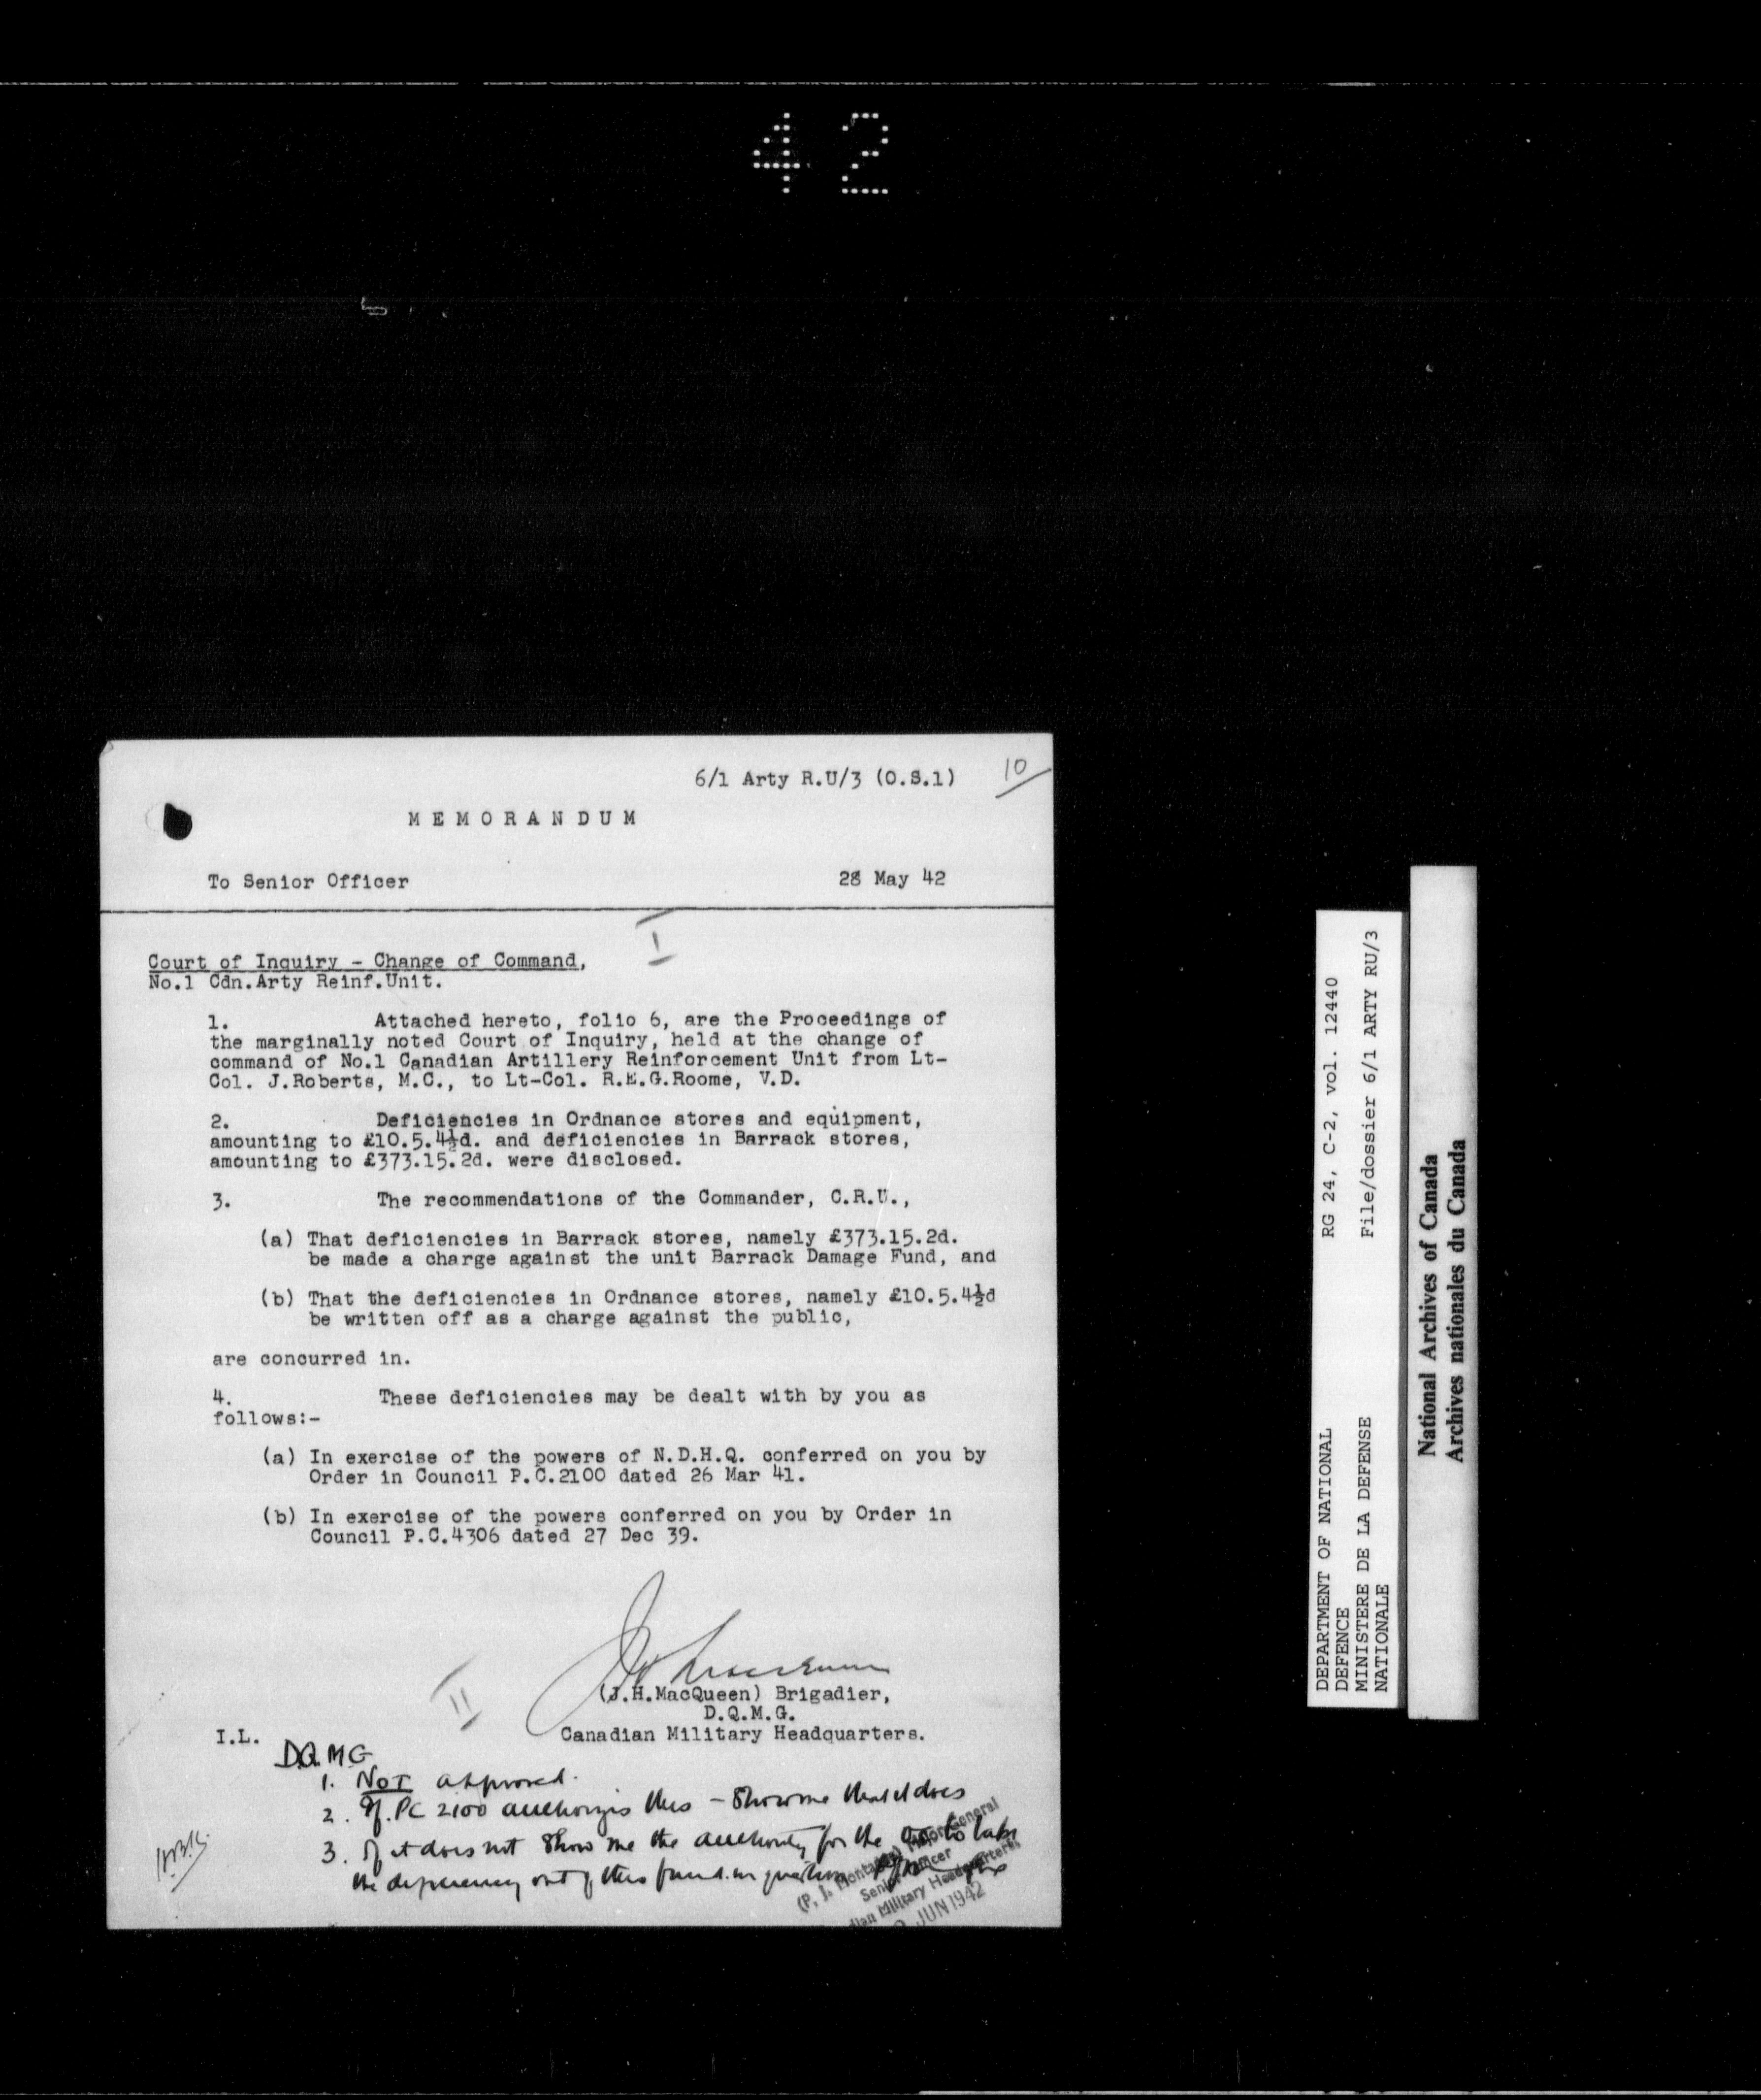 42
6/1 Arty R.U/3 (O.S.1)
10
MEMORANDUM
To Senior Officer
28 May 42
I
Court of Inquiry - Change of Command,
No.1 Cdn.Arty Reinf.Unit.
1. Attached hereto, folio 6, are the Proceedings of
the marginally noted Court of Inquiry, held at the change of
command of No.1 Canadian Artillery Reinforcement Unit from Lt-
Col. J.Roberts, M.C., to Lt-Col. R.E.G.Roome, V.D.
2. Deficiencies in Ordnance stores and equipment,
amounting to £10.5.4½d. and deficiencies in Barrack stores,
amounting to £373.15.2d. were disclosed.
3. The recommendations of the Commander, C.R.U.,
(a) That deficiencies in Barrack stores, namely £373.15.2d.
be made a charge against the unit Barrack Damage Fund, and
(b) That the deficiencies in Ordnance stores, namely £10.5.4½d
be written off as a charge against the public,
are concurred in.
4. These deficiencies may be dealt with by you as
follows:-
(a) In exercise of the powers of N.D.H.Q. conferred on you by
Order in Council P.C.2100 dated 26 Mar 41.
(b) In exercise of the powers conferred on you by Order in
Council P.C.4306 dated 27 Dec 39.
(J.H.MacQueen) Brigadier,
D.Q.M.G.
Canadian Military Headquarters.
II
I.L.
D.Q.M.G
1. NOT approved.
2. If PC 2100 authorizes this - Show me that it does
3. If it does not show me the authority for the to take
the deficiency out of this fund. in question
(P. J. Montague) Major-General
Senior Officer
dian Military Headquarters
JUN 1942
DEPARTMENT OF NATIONAL
DEFENCE
MINISTERE DE LA DEFENSE
NATIONALE
RG 24, C-2, vol. 12440
File/dossier 6/1 ARTY RU/3
National Archives of Canada
Archives nationales du Canada